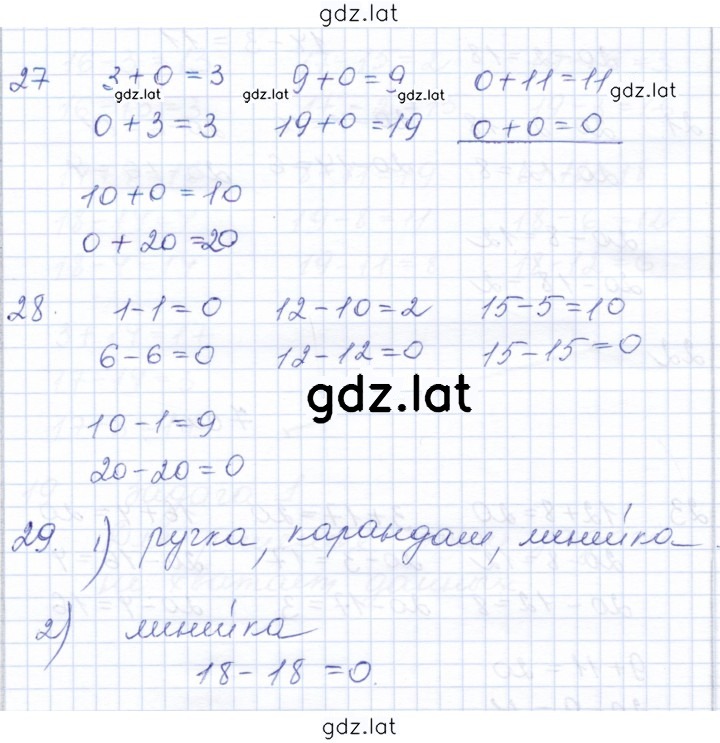 gdz.lat
27 3+0=3 9+0=9 0+11=11
gdz.lat gdz.lat gdz.lat gdz.lat
0+3=3 19+0=19 0+0=0
10+0=10
0+20=20
28. 1-1=0 12-10=2 15-5=10
6-6=0 12-12=0 15-15=0
gdz.lat
10-1=9
20-20=0
29. 1) ручка, карандаш, линийка
2) линийка
18-18=0.
gdz.lat